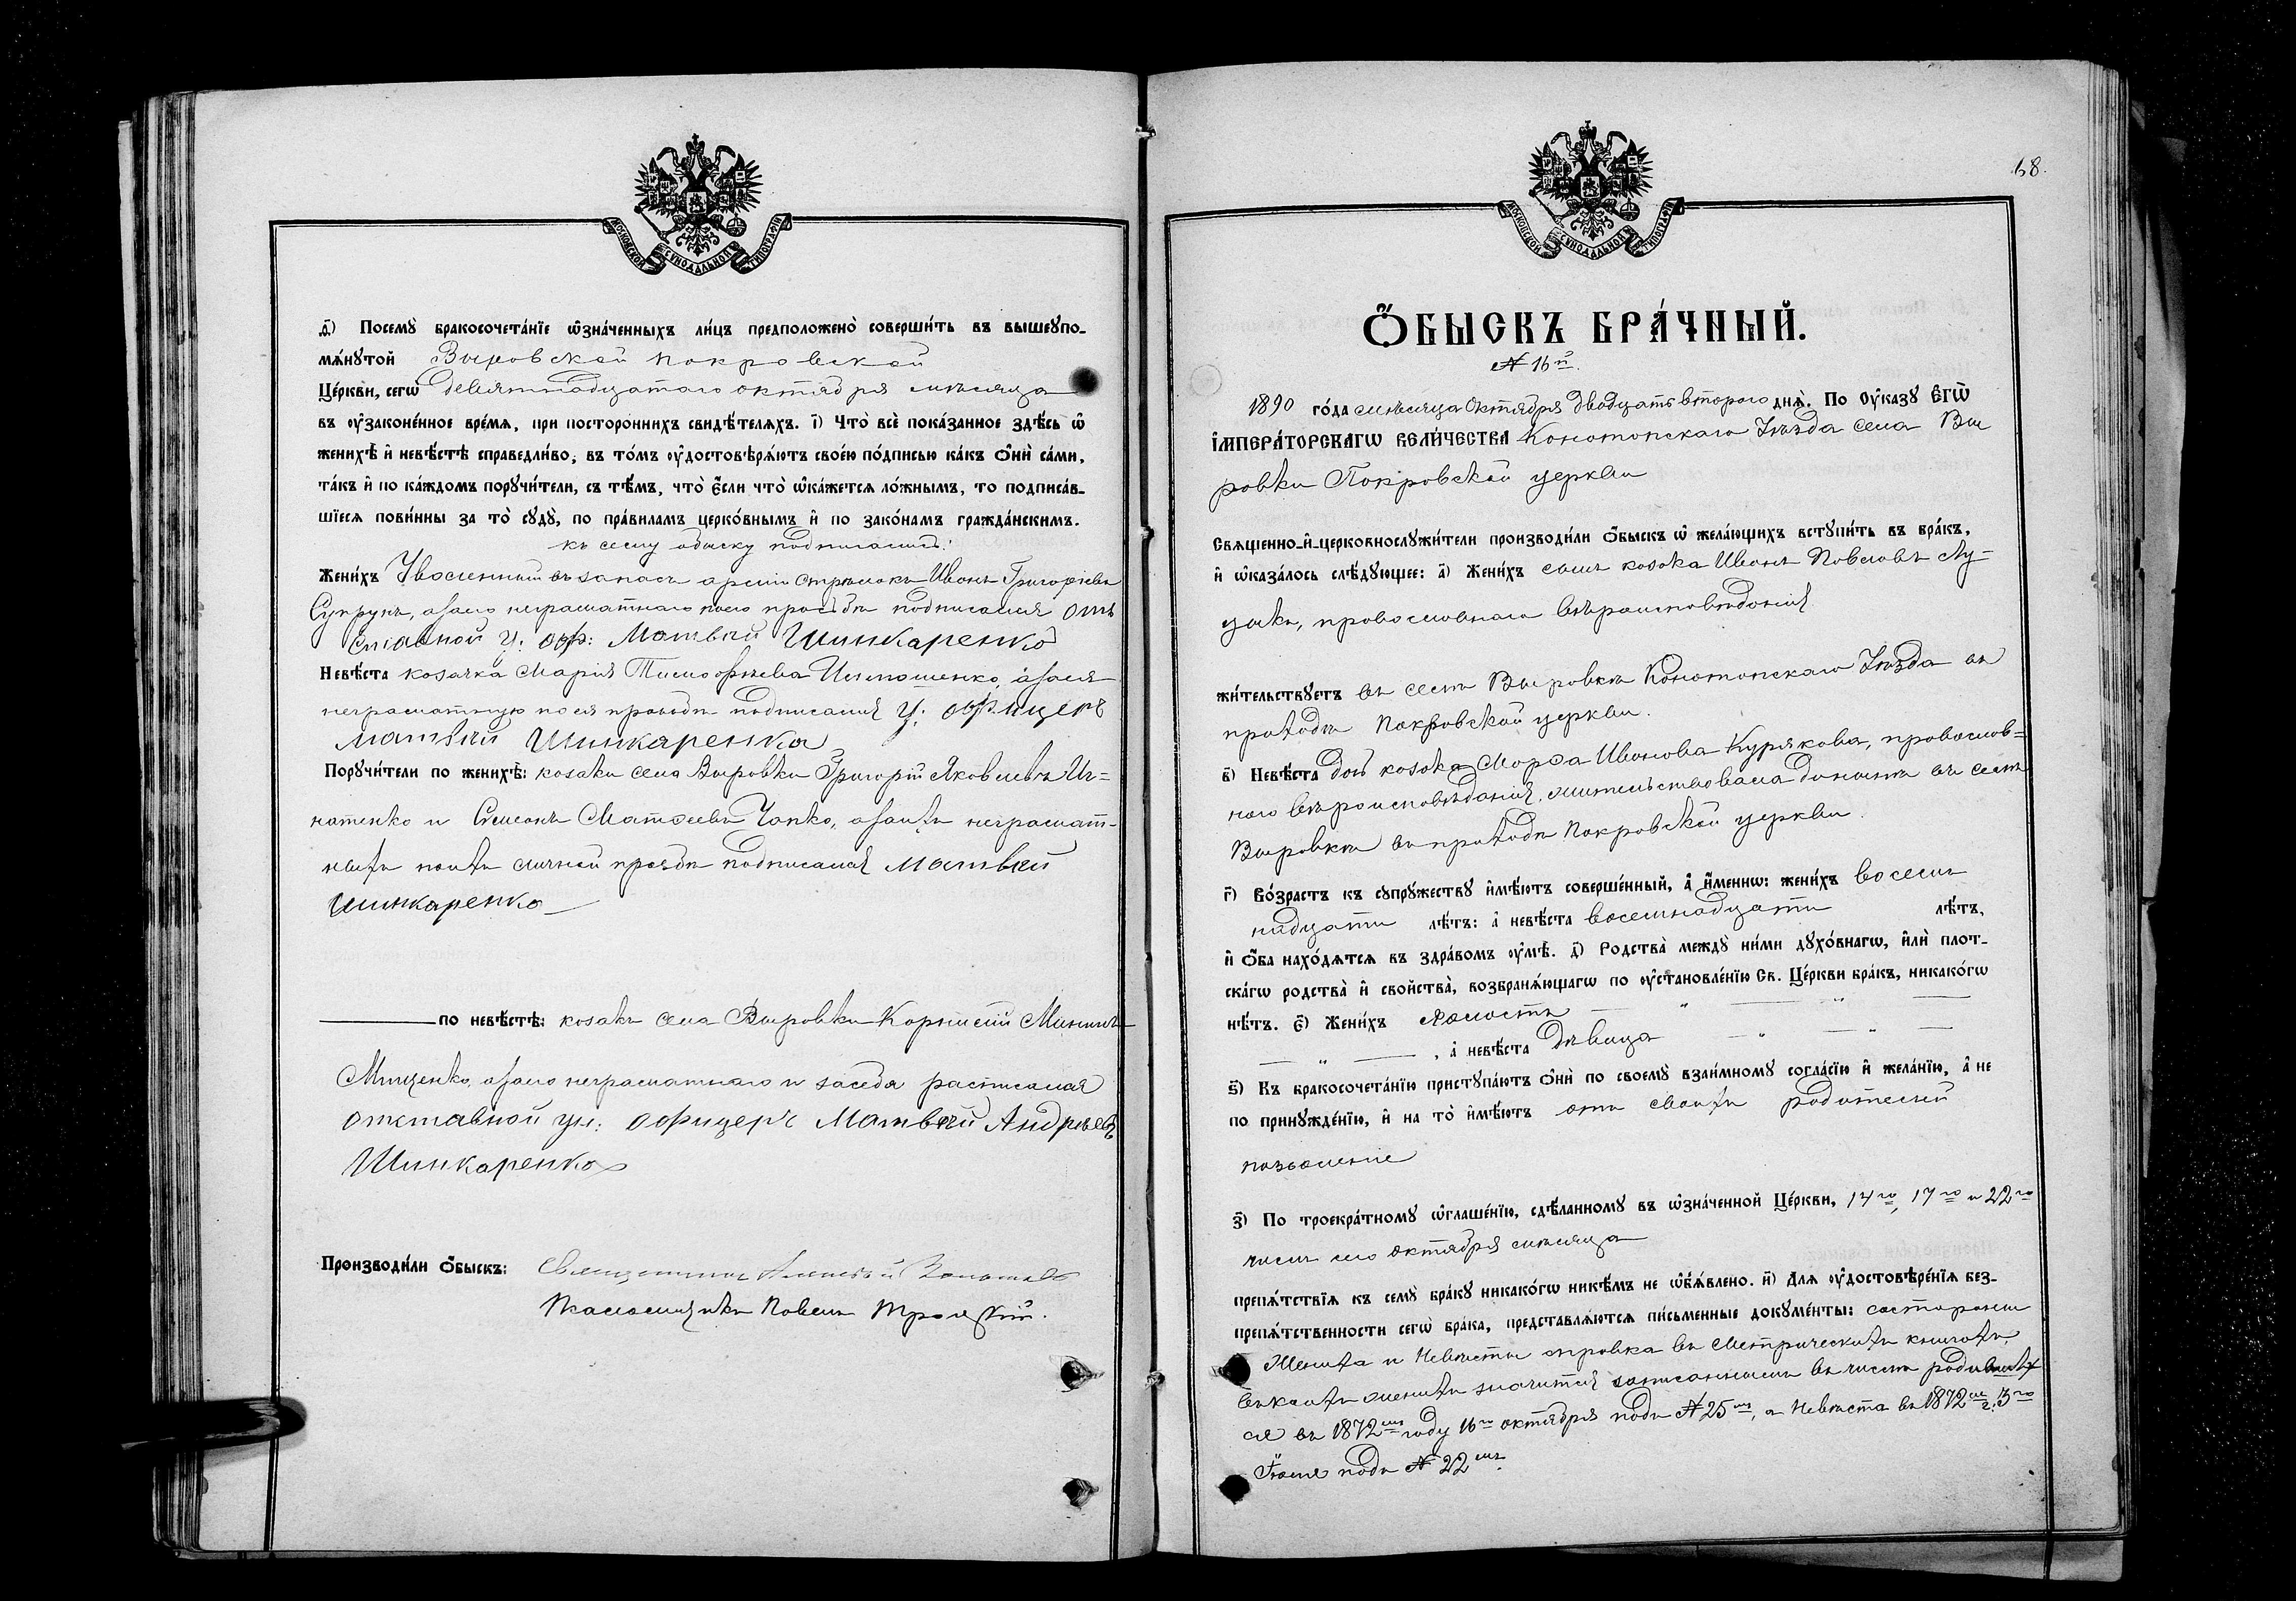 МОСКОВСКОЙ СѴНОДАЛЬНОЙ ТИПОГРАФІИ
ѳ҃) Посемꙋ̀ бракосочета́нїе ѡ҆зна́ченныхъ ли́цъ предположено̀ соверши́ть въ вышеꙋпо-
мѧ́нꙋтой Выровской Покровской
Це́ркви, сегѡ̀ девятнадцатаго октября мѣсяца
въ ᲂу҆законе́нное вре́мѧ, при посторо́ннихъ свидѣ́телѧхъ. і҃) Что̀ всѐ пока́занное здѣ́сь ѡ҆
женихѣ̀ и҆ невѣ́стѣ справедли́во, въ то́мъ ᲂу҆достовѣрѧ́ютъ свое́ю по́дписью ка́къ ѻ҆нѝ са́ми,
та́къ и҆ по ка́ждомъ порꙋчи́тели, съ тѣ́мъ, что̀ є҆́сли что̀ ѡ҆ка́жется ло́жнымъ, то подписа́в-
шїесѧ пови́нны за то̀ сꙋдꙋ̀, по пра́виламъ церко́внымъ и҆ по зако́намъ гражда́нскимъ.
къ сему обыску подписались:
Жени́хъ Уволенный въ запасъ арміи стрѣлокъ Иванъ Григоріевъ
Супрунъ, а за его неграмотнаго по его просьбѣ подписался От
ставной у: оф: Матвѣй Шинкаренко
Невѣ́ста козачка Марія Тимофѣева а за ея
неграмотную по ея просьбѣ подписался У: офицеръ
Матвѣй Шинкаренко
Порꙋчи́тели по женихѣ̀: козаки села Выровки Григорій Яковлевъ Иг=
натенко и Симеонъ Матѳеевъ Чапко, а за ихъ неграмот-
ныхъ по ихъ личной просьбѣ подписался Матвѣй
Шинкаренко
по невѣ́стѣ: козакъ села Выровки Корнилій Мининъ
Мищенко, а за его неграмотнаго и за себя расписался
отставной ун: оффицеръ Матвѣй Андреевъ
Шинкаренко
Производи́ли ѻ҆́быскъ: Священникъ Алексѣй
Псаломщикъ Павелъ Троицкій.
68.
МОСКОВСКОЙ СѴНОДАЛЬНОЙ ТИПОГРАФІИ
Ѻ҆́БЫСКЪ БРА́ЧНЫЙ.
№ 16й.
1890 го́да мѣсяца Октября двадцать втораго днѧ̀. По Оу҆казꙋ Є҆гѡ̀
І҆МПЕРА́ТОРСКАГѠ ВЕЛИ́ЧЕСТВА Конотопскаго Уѣзда села Вы
ровки Покровской церкви
Свѧщенно-и҆-церковнослꙋжи́тели производи́ли ѻ҆́быскъ ѡ҆ жела́ющихъ вступи́ть въ бра́къ,
и҆ ѡ҆каза́лось слѣ́дꙋющее: а҃) Жени́хъ сынъ козака Иванъ Павловъ Лу=
цыкъ, православнаго вѣроисповѣданія
жи́тельствꙋетъ въ селѣ Выровкѣ Конотопскаго Уѣзда въ
приходѣ Покровской церкви.
в҃) Невѣ́ста дочь козака Марѳа Иванова Курякова, православ=
наго вѣроисповѣданія, жительствовала донынѣ въ селѣ
Выровкѣ въ приходѣ Покровской церкви.
г҃) Во́зрастъ къ сꙋпрꙋ́жествꙋ и҆мѣ́ютъ соверше́нный, а҆ и҆́меннѡ: жени́хъ восем
надцати лѣ́тъ: а҆ невѣ́ста восемнадцати лѣ́тъ,
и҆ ѻ҆́ба нахо́дѧтсѧ въ здра́вомъ ᲂу҆мѣ̀. д҃) Родства̀ междꙋ̀ ни́ми дꙋхо́внагѡ, и҆лѝ плот-
ска́гѡ родства̀ и҆ свойства̀, возбранѧ́ющагѡ по ᲂу҆становле́нїю Св. Це́ркви бра́къ, никако́гѡ
нѣ́тъ. є҃) Жени́хъ холостъ — „ — „ —
— „ —, а҆ невѣ́ста дѣвица — „ — „ —
ѕ҃) Къ бракосочета́нїю пристꙋпа́ютъ ѻ҆нѝ по своемꙋ̀ взаи́мномꙋ согла́сїю и҆ жела́нїю, а҆ не
по принꙋжде́нїю, и҆ на то̀ и҆мѣ́ютъ отъ своихъ родителей
позволеніе
з҃) По троекра́тномꙋ ѡ҆глаше́нїю, сдѣ́ланномꙋ въ ѡ҆зна́ченной Це́ркви, 14го, 17го и 22го
чиселъ сего октября мѣсяца
препѧ́тствїѧ къ семꙋ̀ бра́кꙋ никако́гѡ никѣ́мъ не ѡ҆б̾ѧ́влено. и҃) Для ᲂу҆достовѣре́нїѧ без-
препѧ́тственности сегѡ̀ бра́ка, представлѧ́ютсѧ пи́сьменные докꙋме́нты: со стороны
Жениха и Невѣсты справка въ метрическихъ книгахъ,
въ коихъ женихъ значится записаннымъ въ числѣ родивших
ся въ 1872мъ году 16го октября подъ № 25мъ, а Невѣста въ 1872м г. 3го
Іюля подъ № 22мъ.